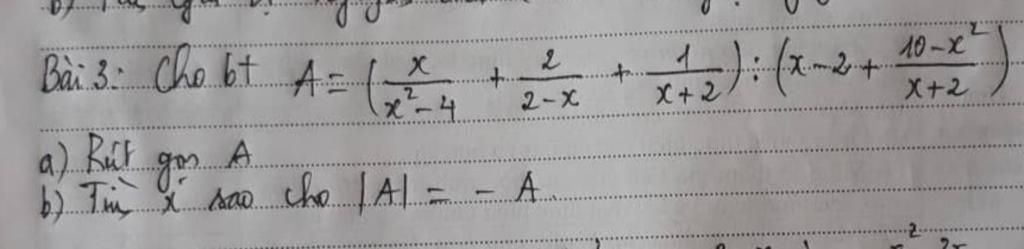 Bài 3: Cho bt A = (x/(x² - 4) + 2/(2 - x) + 1/(x + 2)) : (x - 2 + (10 - x²)/(x + 2))
a) Rút gọn A
b) Tìm x sao cho |A| = - A